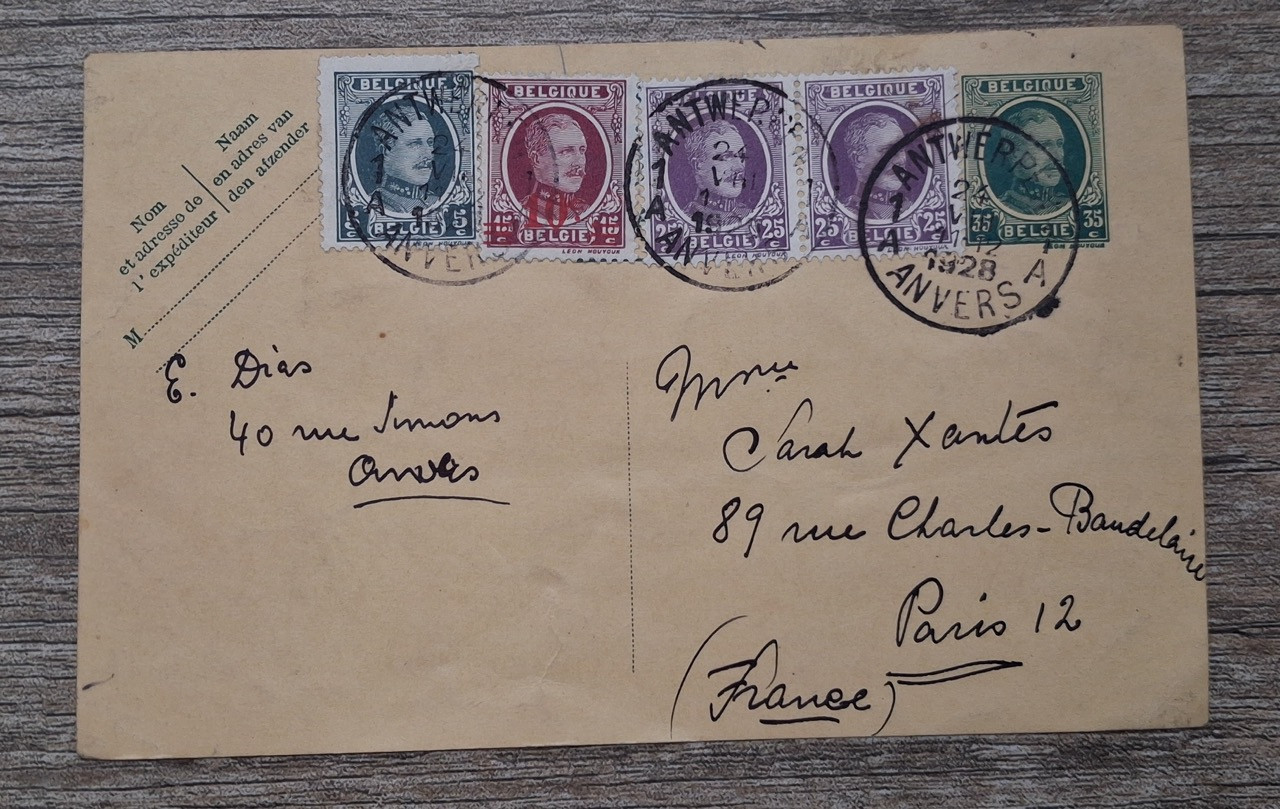 BELGIQUE
5 c 5 c
BELGIE
BELGIQUE
10c
15 c 15 c
BELGIË
LEON HOUYOUX
BELGIQUE
25 c 25 c
BELGIË
LEON HOUYOUX
BELGIQUE
25 c 25 c
BELGIË
BELGIQUE
35 c 35 c
BELGIË
ANTWERPEN
1 A
24
ANVERS
ANTWERPEN
1 A
24
ANVERS
ANTWERPEN
1 A 1 A
24
1928
ANVERS
Nom
et adresse de
l'expéditeur
Naam
en adres van
den afzender
M
E. Dias
40 rue Simons
Anvers
Mme
Sarah Xantès
89 rue Charles-Baudelaire
Paris 12
(France)